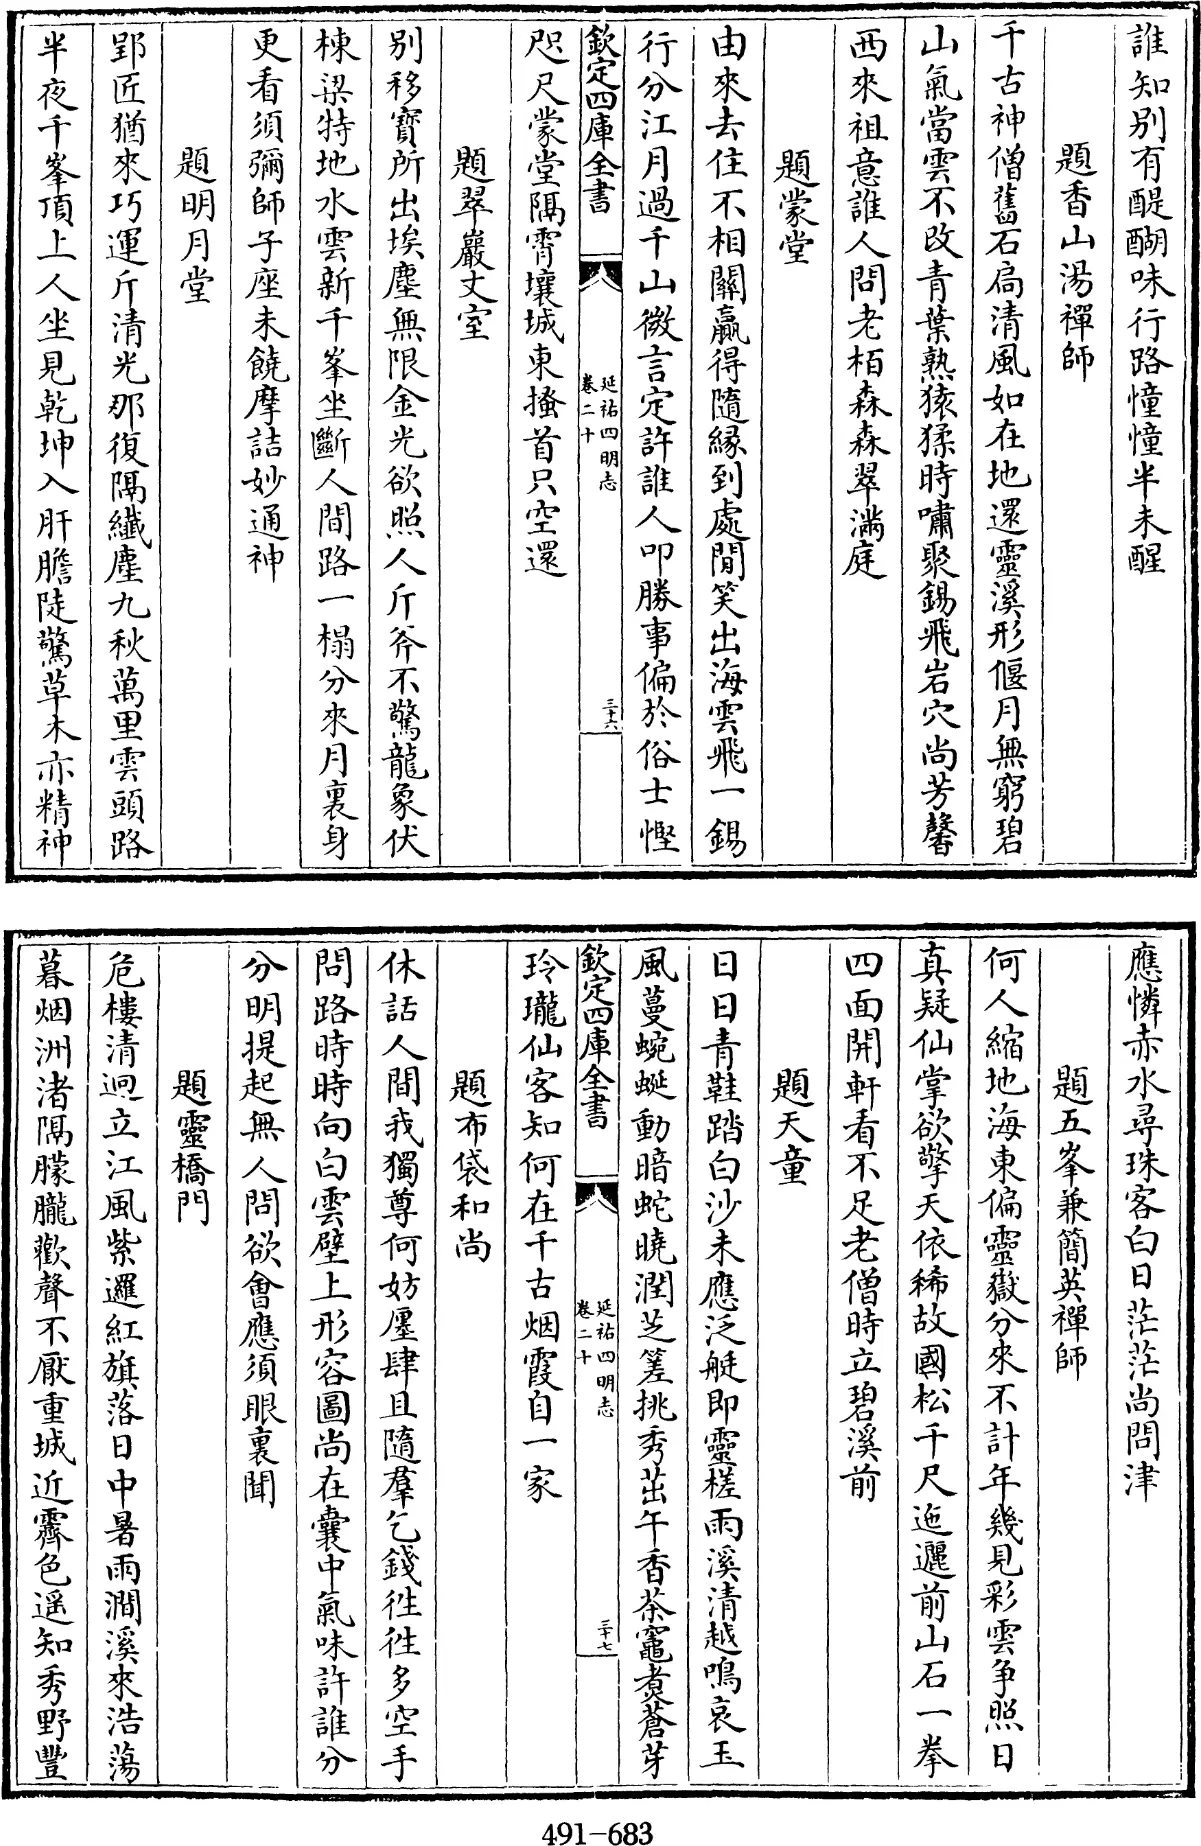 誰知别有醍醐味行路憧憧半未醒
題香山湯禪師
千古神僧舊石扄清風如在地還靈溪形偃月無窮碧
山氣當雲不改青葉熟猿猱時嘯聚錫飛岩穴尚芳馨
西來祖意誰人問老栢森森翠滿庭
題蒙堂
由來去住不相關贏得隨緣到處閒笑出海雲飛一錫
行分江月過千山微言定許誰人叩勝事偏於俗士慳
欽定四庫全書
延祐四明志
卷二十
三十六
咫尺蒙堂隔霄壤城東搔首只空還
題翠巖丈室
别移寶所出埃塵無限金光欲照人斤斧不驚龍象伏
棟梁特地水雲新千峯坐斷人間路一榻分來月裏身
更看須彌師子座未饒摩詰妙通神
題明月堂
郢匠猶來巧運斤清光那復隔纖塵九秋萬里雲頭路
半夜千峯頂上人坐見乾坤入肝膽陡驚草木亦精神
應憐赤水尋珠客白日茫茫尚問津
題五峯兼簡英禪師
何人縮地海東偏靈嶽分來不計年幾見彩雲争照日
真疑仙掌欲擎天依稀故國松千尺迤邐前山石一拳
四面開軒看不足老僧時立碧溪前
題天童
日日青鞋踏白沙未應泛艇即靈槎雨溪清越鳴哀玉
風蔓蜿蜒動暗蛇曉潤芝筌挑秀茁午香茶竈煑蒼芽
欽定四庫全書
延祐四明志
卷二十
三十七
玲瓏仙客知何在千古烟霞自一家
題布袋和尚
休話人間我獨尊何妨廛肆且隨羣乞錢徃徃多空手
問路時時向白雲壁上形容圖尚在囊中氣味許誰分
分明提起無人問欲會應須眼裏聞
題靈橋門
危樓清迥立江風紫邏紅旗落日中暑雨澗溪來浩蕩
暮烟洲渚隔朦朧歡聲不厭重城近霽色遥知秀野豐
491-683